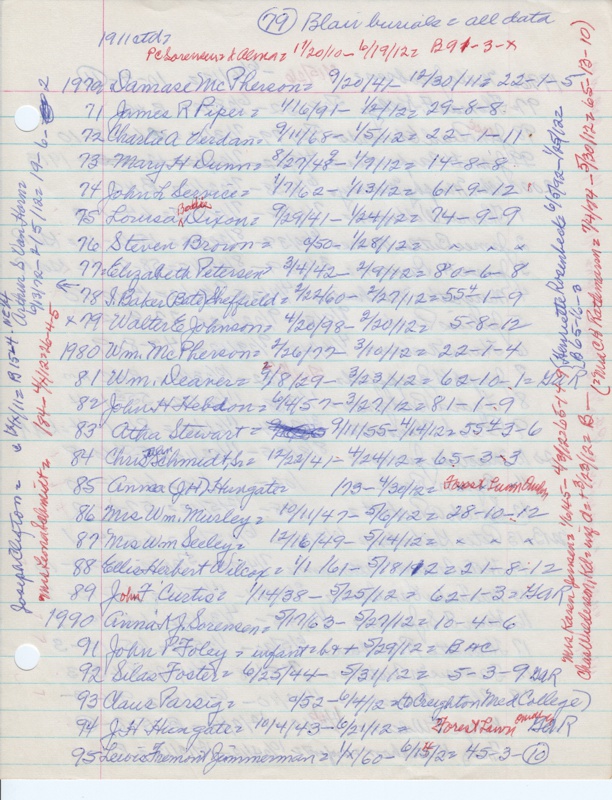 (79) Blair burials = all data
1911 ctd=
PC Sorensen's & Alma = 1/20/10 - 6/19/12 = B 91-3-x
1970 Damase McPherson = 9/20/41 - 12/30/11 = 22-1-5
71 James R Piper = 4/16/91 - 1/2/12 = 29-8-8
72 Charlie A Verdan = 9/11/68 - 1/5/12 = 22-1-11
73 Mary H Dunn = 8/27/48 - 1/9/12 = 14-8-8
74 John L Service = 1/7/62 - 1/13/12 = 61-9-12
75 Louisa Dixon = 9/29/41 - 1/24/12 = 74-9-9
76 Steven Brown = 9/50 - 1/28/12 = x x x
77 Elizabeth Petersen 3/4/42 - 2/9/12 = 80-6-8
78 I. Baker (Bate) Sheffield = 2/22/60 - 2/27/12 = 55½-1-9
x 79 Walter C Johnson = 4/20/98 - 2/20/12 = 5-8-12
1980 Wm. McPherson = 2/26/77 - 3/10/12 = 22-1-4
81 Wm. Deaver = 2/8/29 - 3/23/12 = 62-10-1 = GAR
82 John H Hebdon = 6/4/57 - 3/27/12 = 81-1-9
83 Atha Stewart = 9/11/55 - 4/14/12 = 55½-3-6
84 Chris Schmidt Sr = 12/22/41 - 4/24/12 = 65-3-3
85 Anna (JH) Hungate = /73 - 4/30/12 = Forest Lawn
86 Mrs Wm. Murley = 10/11/47 - 5/6/12 = 28-10-12
87 Mrs Wm Seeley = 12/16/49 - 5/14/12 = x x x
88 Ellis Herbert Wilcox = 1/1/61 - 5/18/12 = 21-8-12
89 John F Curtis = 1/14/38 - 5/25/12 = 62-1-3 = GAR
1990 Annie K J Sorensen = 5/17/63 - 5/27/12 = 10-4-6
91 John P Foley = infant = b9 + 5/29/12 = B AC
92 Silas Foster = 6/25/44 - 5/31/12 = 5-3-9 GAR
93 Claus Parsig = 9/52 - 6/4/12 (to Creighton Med College)
94 J.H. Hungate = 10/4/43 - 6/21/12 = Forest Lawn Omaha GAR
95 Lewis Fremont Zimmerman = 1/x/60 - 6/14/12 = 45-3-(10)
Arthur S Van Horn = 6/13/72 - 2/15/12 = 19-6-2
Joseph Clayton =
Mrs Lena Schmidt = /84 - 4/4/12 = 6-4-5
Henriette Rosenbede 6/3/72 - 1/25/12
B 65-16-3
(= Mrs CA Rathmann) = 7/4/74 - 5/30/12 = 65-13-10)
Mrs Karen Jensen = 1/6/45 - 4/3/12 = 65-14-9